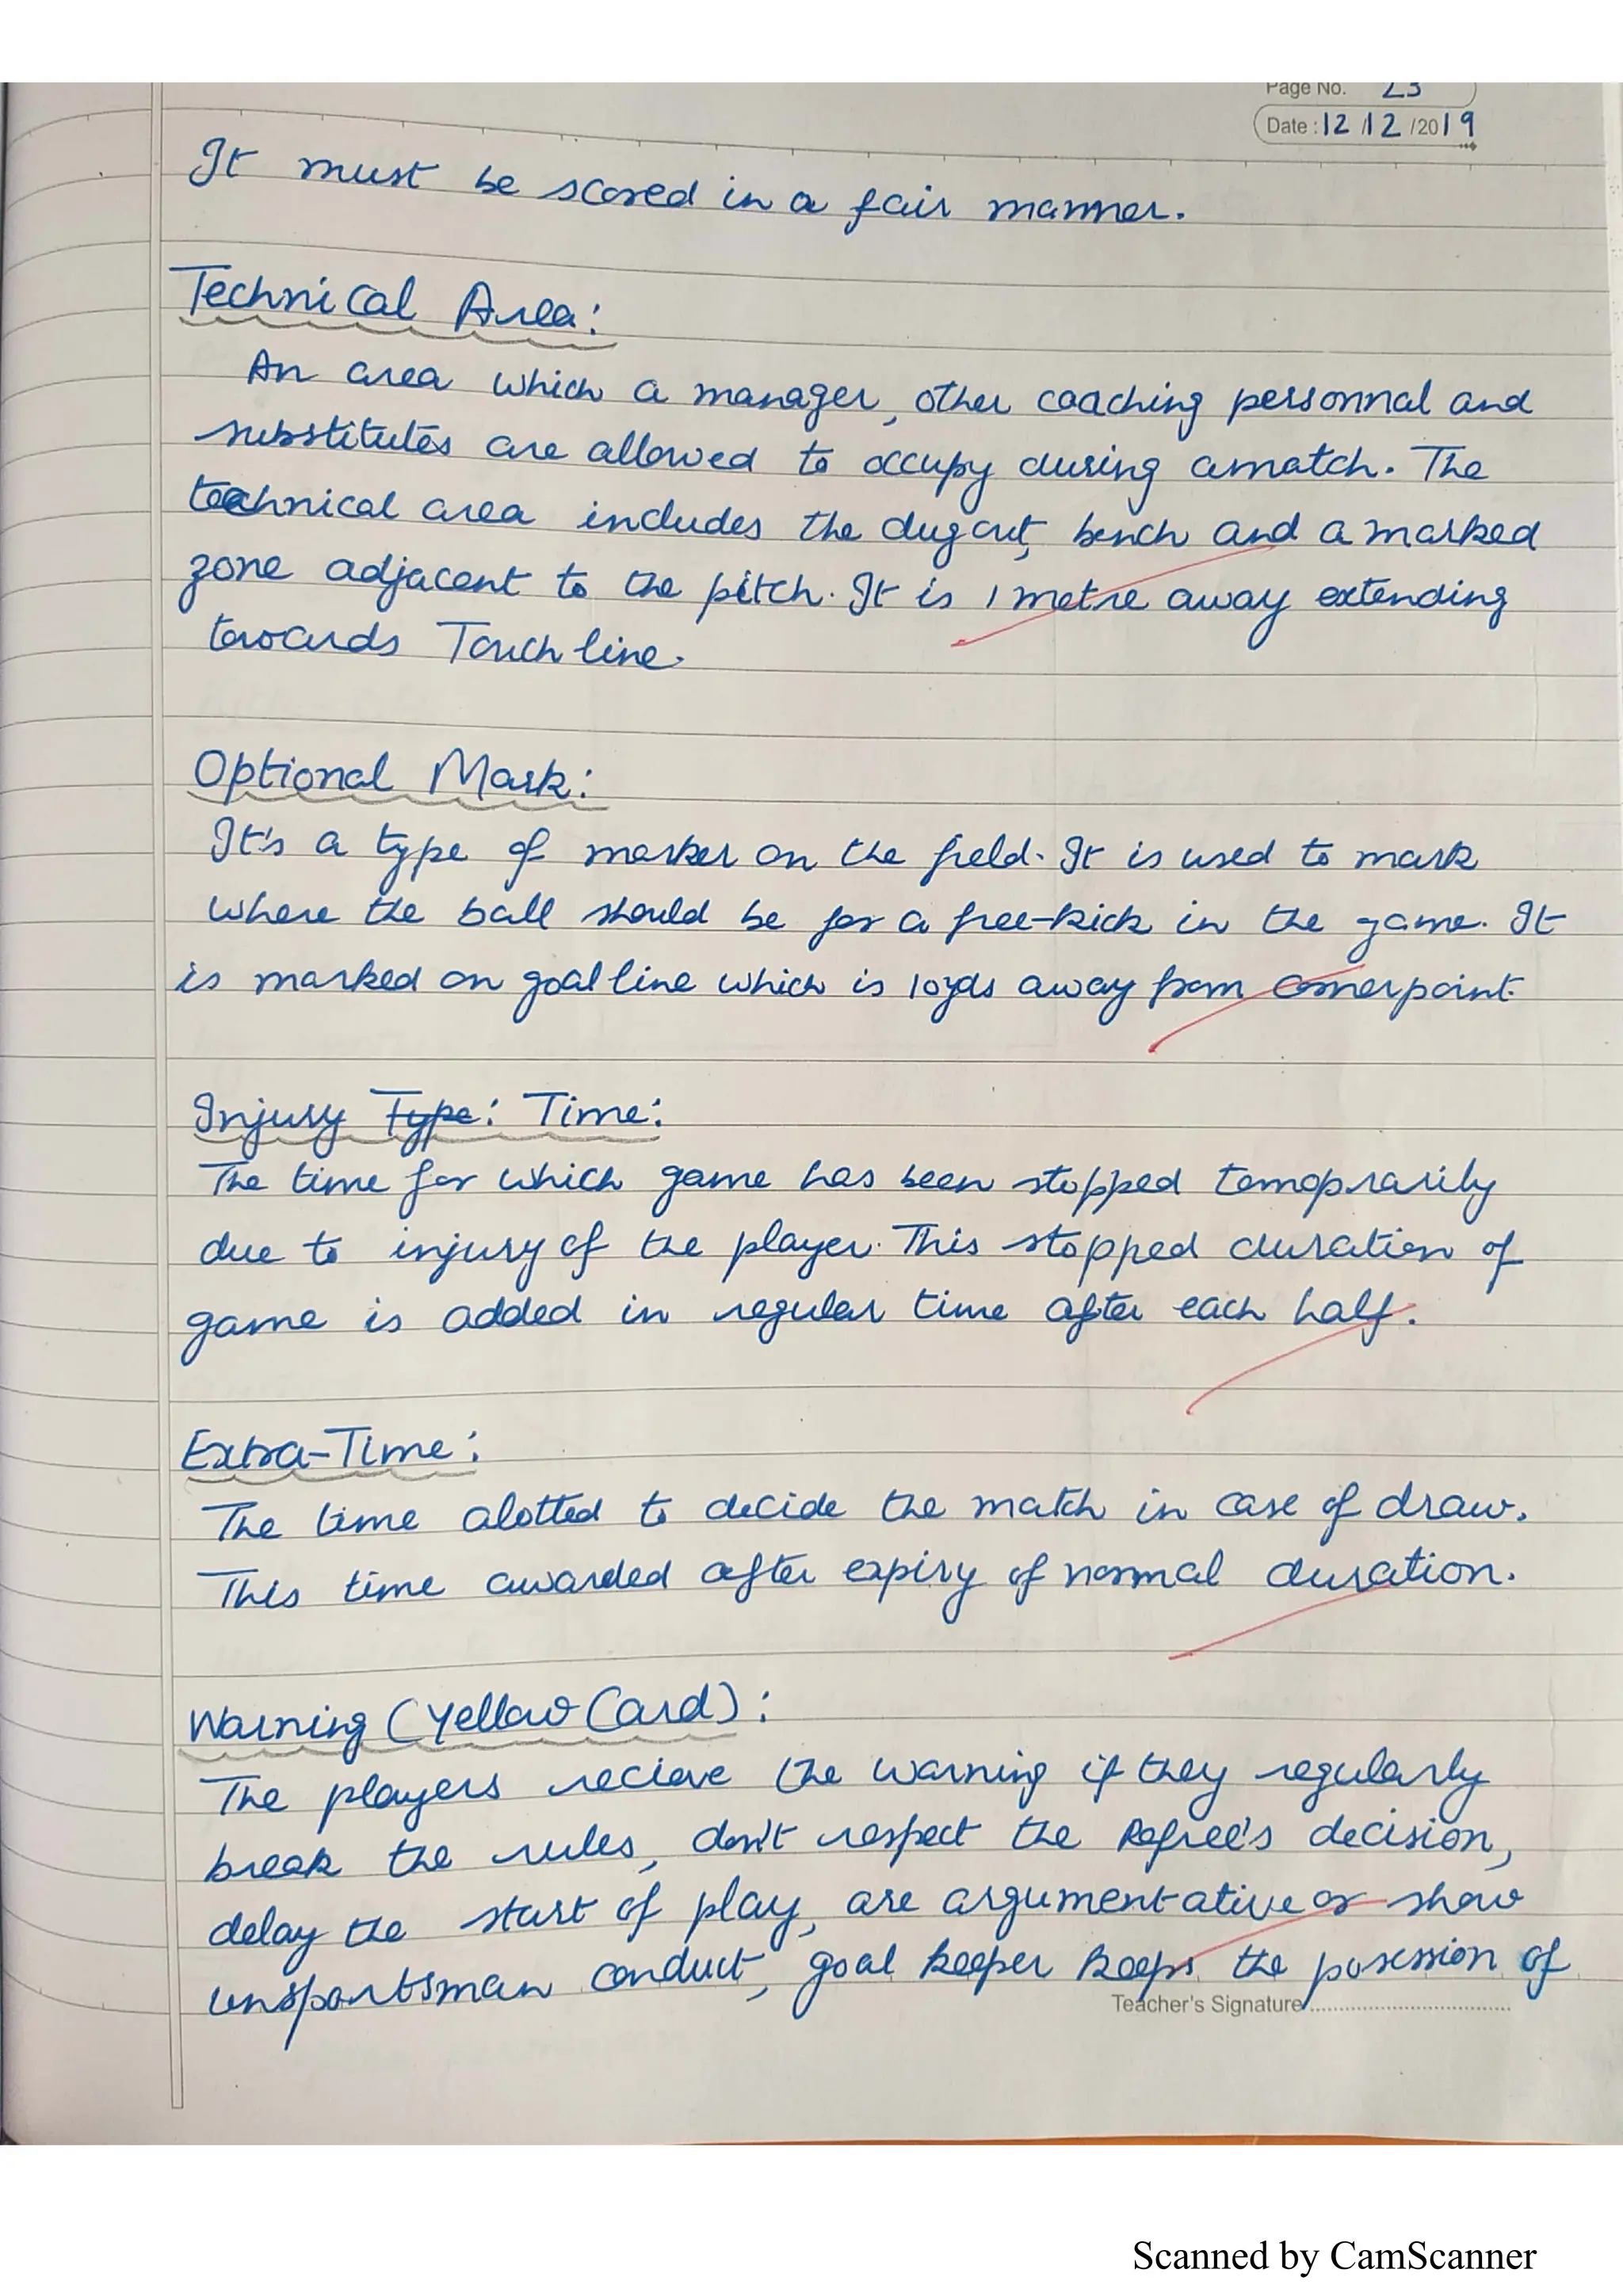 Page No. 23
Date : 12 /12 /2019
It must be scored in a fair manner.
Technical Area:
An area which a manager, other coaching personnal and
substitutes are allowed to occupy during a match. The
technical area includes the dugout, bench and a marked
zone adjacent to the pitch. It is 1 metre away extending
towards Touch line.
Optional Mark:
It's a type of marker on the field. It is used to mark
where the ball should be for a free-kick in the game. It
is marked on goal line which is 10yds away from cornerpoint.
Injury Type: Time:
The time for which game has been stopped temoprarily
due to injury of the player. This stopped duration of
game is added in regular time after each half.
Extra-Time:
The time alotted to decide the match in case of draw.
This time awarded after expiry of normal duration.
Warning (Yellow Card):
The players recieve the warning if they regularly
break the rules, don't respect the Refree's decision,
delay the start of play, are argumentative or show
unsportsman conduct, goal keeper keeps the posession of
Teacher's Signature
Scanned by CamScanner